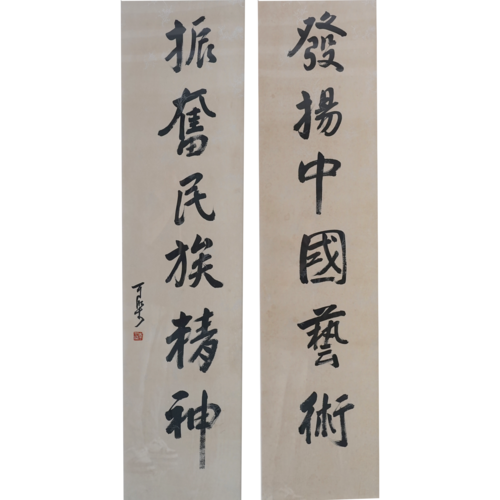 發揚中國藝術
振奮民族精神